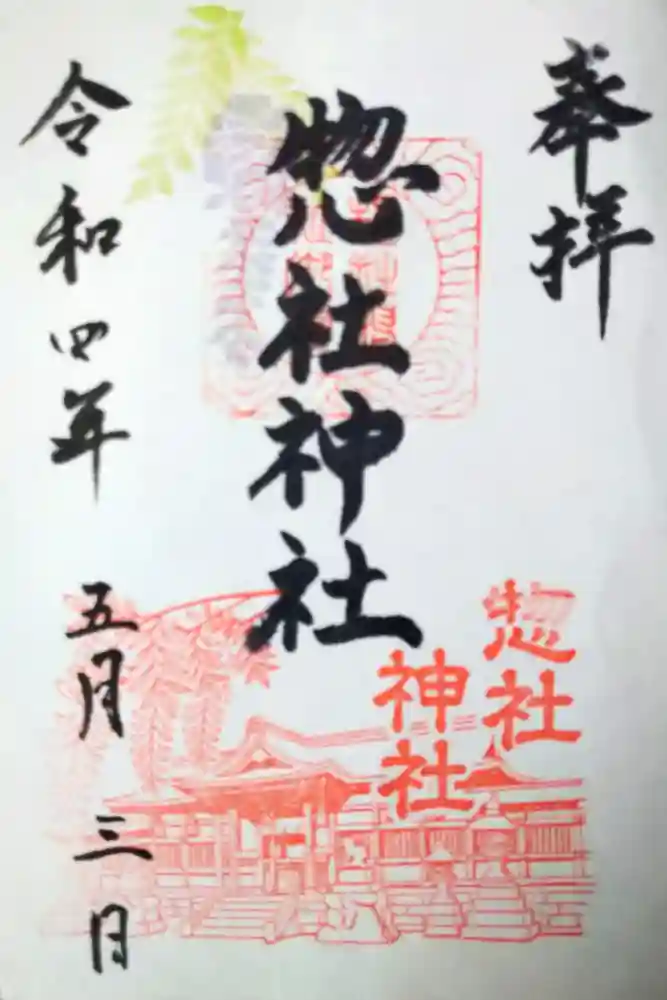 奉拝
惣社神社
惣社
神社
令和四年五月三日